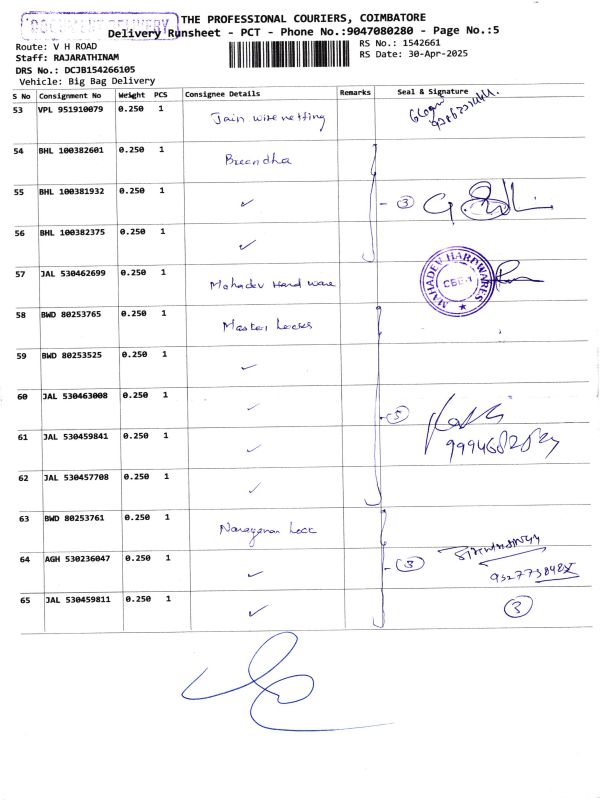 DOCUMENT DELIVERY
THE PROFESSIONAL COURIERS, COIMBATORE
Delivery Runsheet - PCT - Phone No.:9047080280 - Page No.:5
Route: V H ROAD
RS No.: 1542661
Staff: RAJARATHINAM
RS Date: 30-Apr-2025
DRS No.: DCJB154266105
Vehicle: Big Bag Delivery
S No Consignment No Weight PCS Consignee Details Remarks Seal & Signature
53 VPL 951910079 0.250 1 Jain wire netting
54 BHL 100382601 0.250 1 Breendha
55 BHL 100381932 0.250 1 ✓ - 3
56 BHL 100382375 0.250 1 ✓
57 JAL 530462699 0.250 1 Mohadev Hard ware MAHADEV HARDWARES CBE-1
58 BWD 80253765 0.250 1 Master
59 BWD 80253525 0.250 1 ✓
60 JAL 530463008 0.250 1 ✓
61 JAL 530459841 0.250 1 ✓ - 5
62 JAL 530457708 0.250 1 ✓
63 BWD 80253761 0.250 1 Narayanan Lock
64 AGH 530236047 0.250 1 ✓ - 3
65 JAL 530459811 0.250 1 ✓ 3